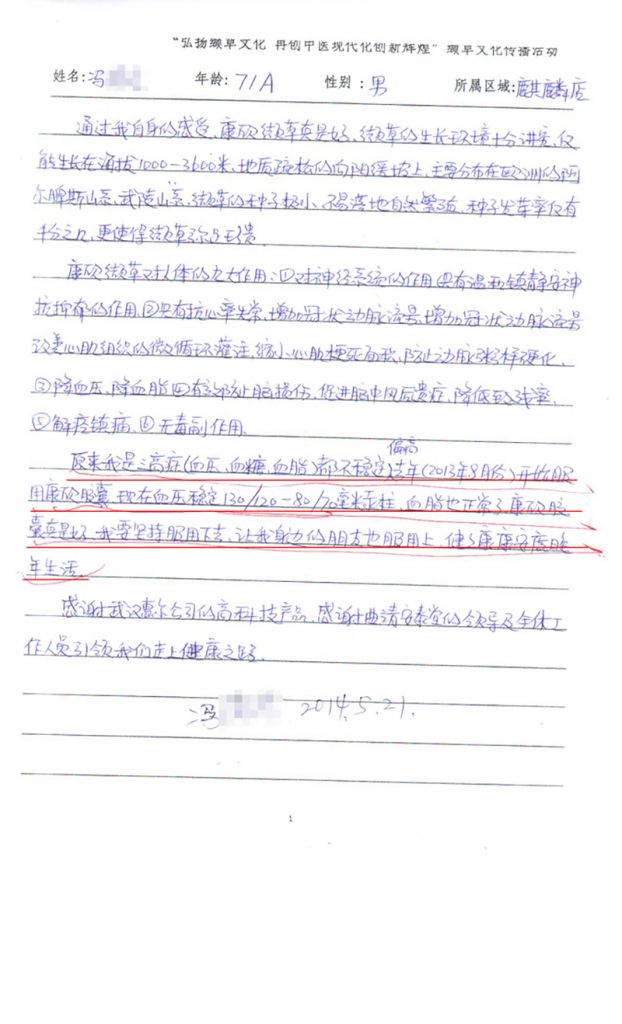 “弘扬缬草文化 再创中医现代化创新辉煌” 缬草文化传播活动
姓名: 冯 年龄: 71A 性别: 男 所属区域: 麒麟店
通过我自身的感受,康欣缬草真是好,缬草的生长环境十分讲究,仅
能生长在海拔1000—3600米,地质疏松的向阳缓坡上,主要分布在欧洲的阿
尔脾斯山系,武陵山系,缬草的种子极小、不易落地自然繁殖,种子发芽率仅有
千分之几,更使得缬草弥足珍贵
康欣缬草对人体的九大作用:①对神经系统的作用具有温和镇静安神
抗抑郁的作用.②具有抗心率失常,增加冠状动脉流号,增加冠状动脉流号
改善心肌组织的微循环灌注,缩小心肌梗死面积,防止动脉粥样硬化、
③降血压,降血脂④有 防止脑损伤,促进脑中风后贵症,降低致残率.
⑤解痉镇痛.⑥无毒副作用.
偏高
原来我是三高症(血压,血糖,血脂)都不稳定,去年(2013年9月份)开始服
用康欣胶囊,现在血压稳定130/120—80/70毫米汞柱,血脂也正常了康欣胶
囊真是好,我要坚持服用下去,让我身边的朋友也服用上,健健康康安度晚
年生活.
感谢武汉惠尔公司的高科技产品,感谢曲靖安泰堂的领导及全体工
作人员引领我们走上健康之路.
冯 2014.5.21.
1